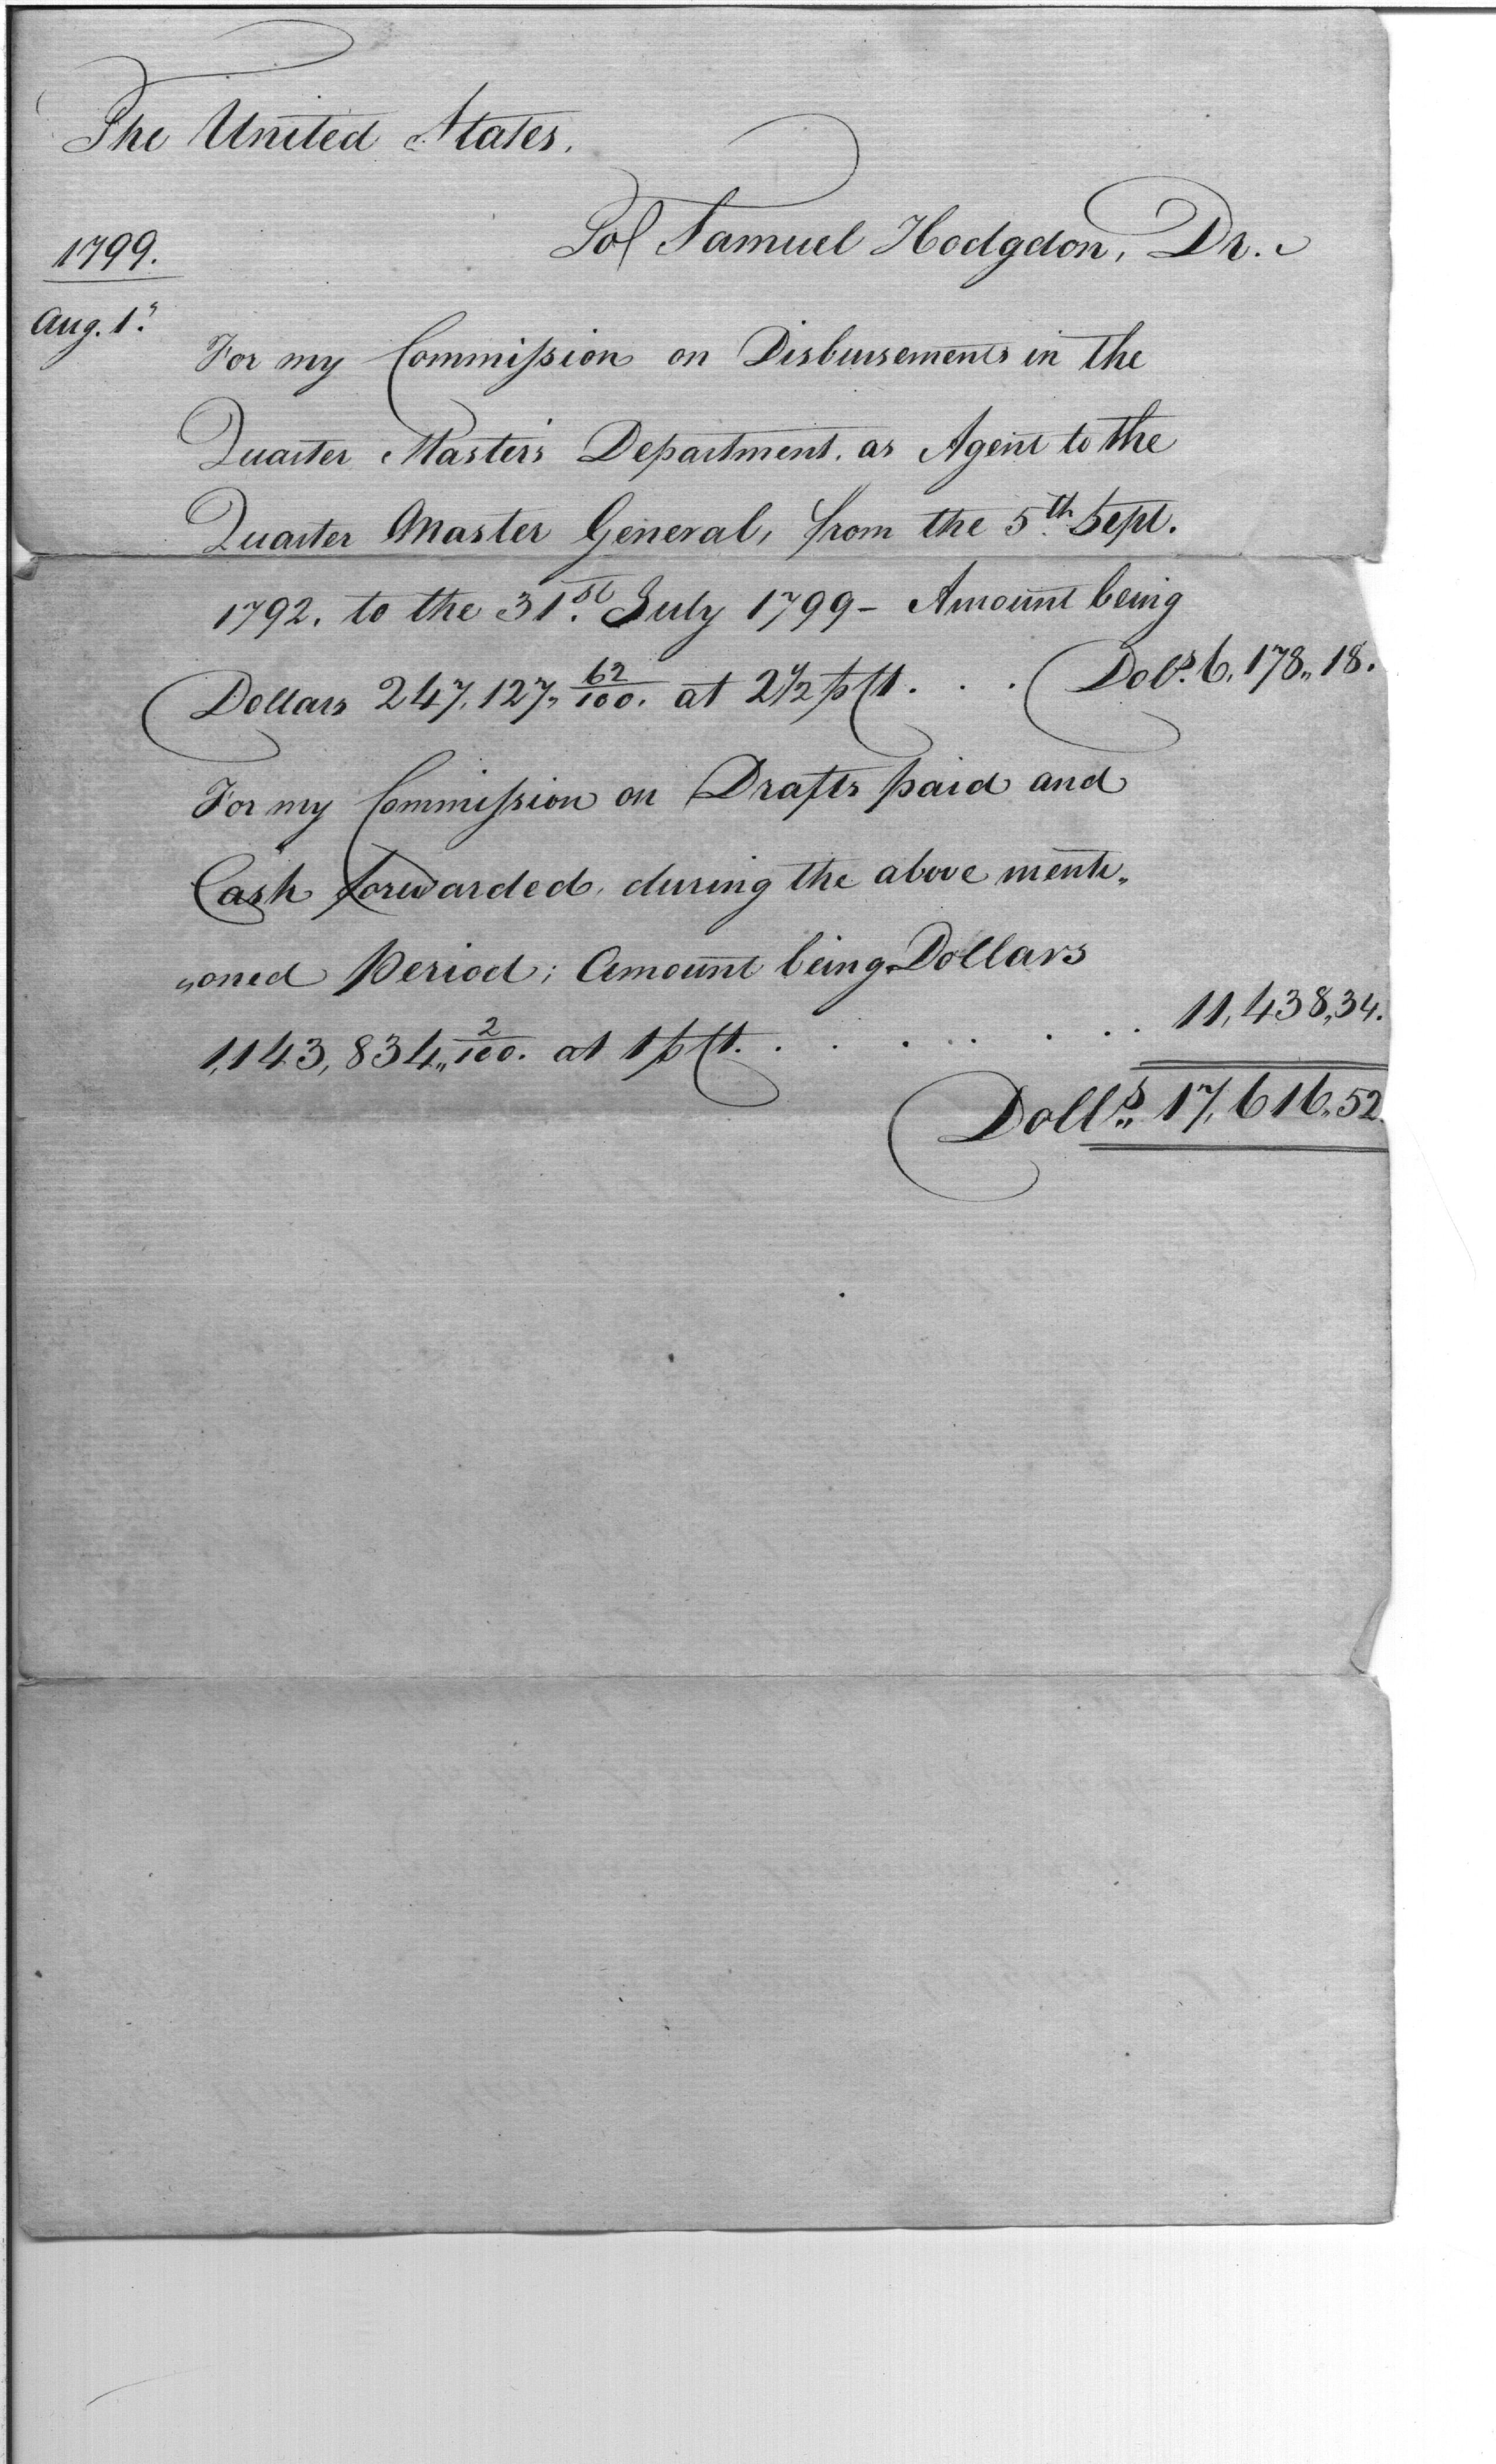 The United States.
To Samuel Hodgdon, Dr.
1799.
Aug. 1.st
For my Commission on Disbursements in the
Quarter Master's Department, as Agent to the
Quarter Master General, from the 5th Sept.
1792. to the 31st July 1799 – Amount being
Dollars 247,127,, 62/100. at 2 1/2 p Ct. . . . Dols. 6,178,,18.
For my Commission on Drafts paid and
Cash forwarded, during the above menti„
„oned Period; Amount being Dollars
1,143,834,, 2/100. at 1 p Ct. . . . . . . . . 11,438,,34.
Dolls. 17,616,,52.